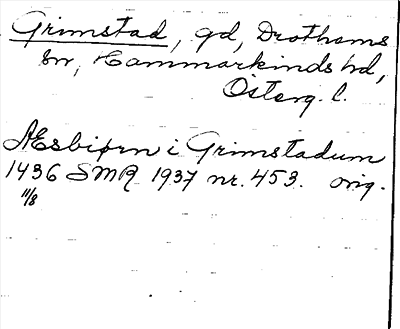 Grimstad, gd, Drothems
sn, Hammarkinds hd,
Österg. l.
Æsbiørn i Grimstadum
1436 SMR 1937 nr. 453. orig.
11/8